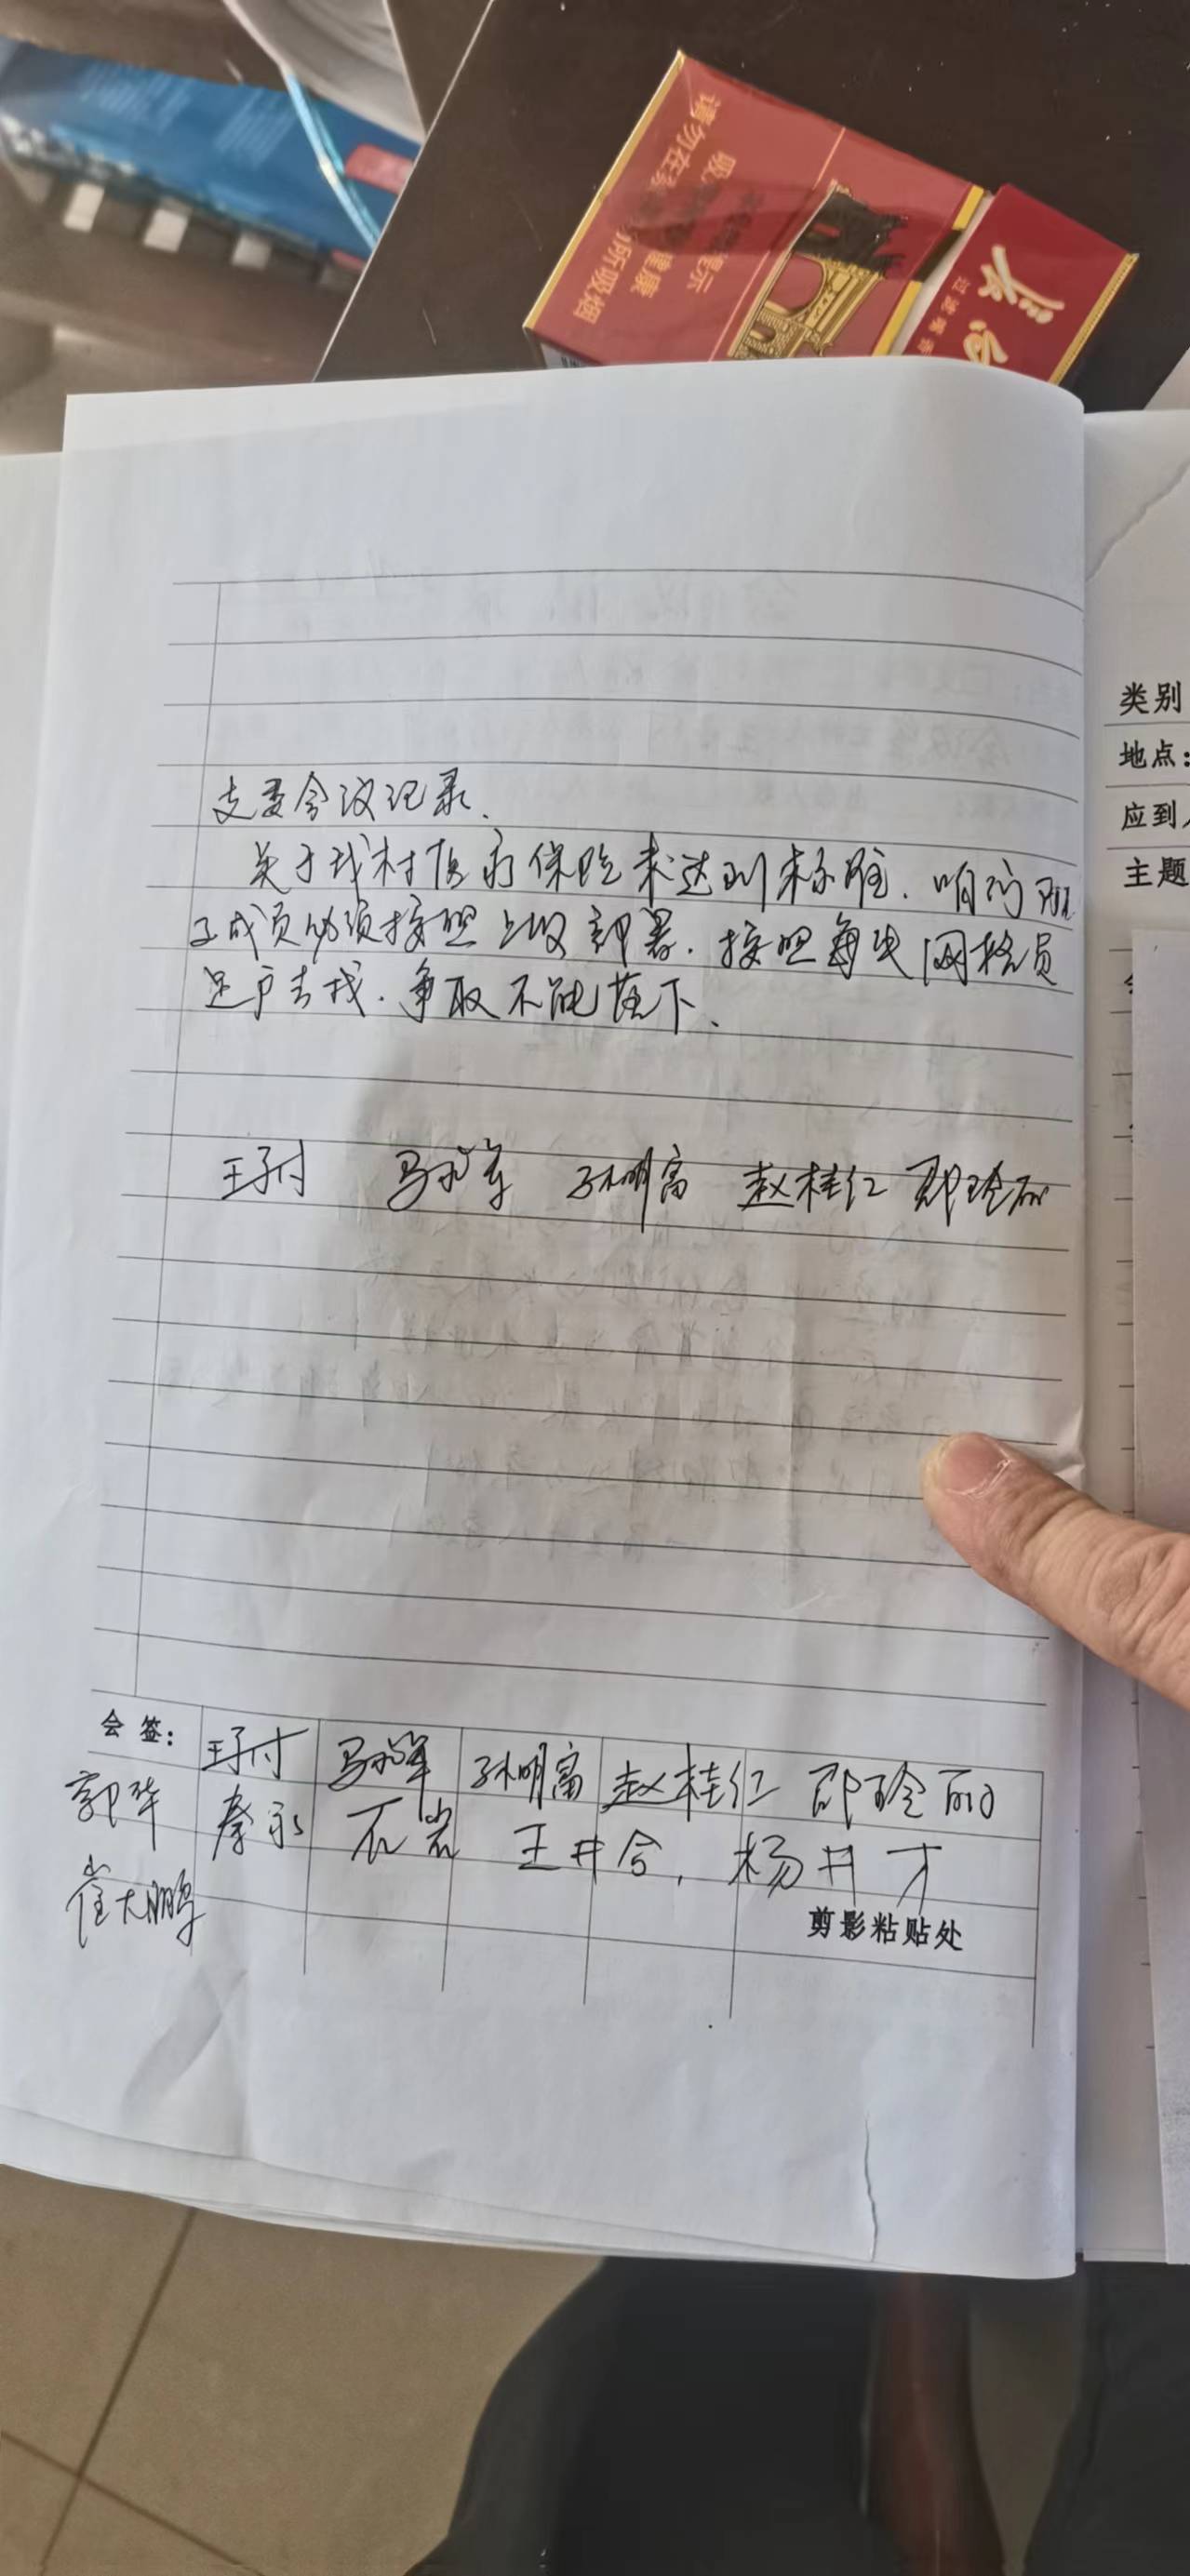 请勿在禁烟场所吸烟
长白
过滤嘴香
类别
地点:
应到
主题
支委会议记录.
关于我村医疗保险未达到标准. 咱们班
子成员必须按照上级部署. 按照每块网格员
逐户去找. 争取不能落下.
孙明富 赵桂仁 邵玲丽
会 签: 孙明富 赵桂仁 邵玲丽
郭华 秦永 石岩 王井合, 杨井才
崔大鹏
剪影粘贴处